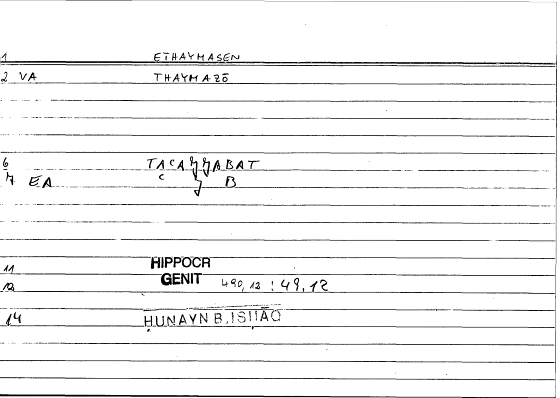 1 ETHAYMASEN
2 VA THAYMAZŌ
6 TACAʒʒABAT
7 EA C ʒ B
11 HIPPOCR
12 GENIT 490,12 : 49,12
14 ḤUNAYN B. ISḤĀQ